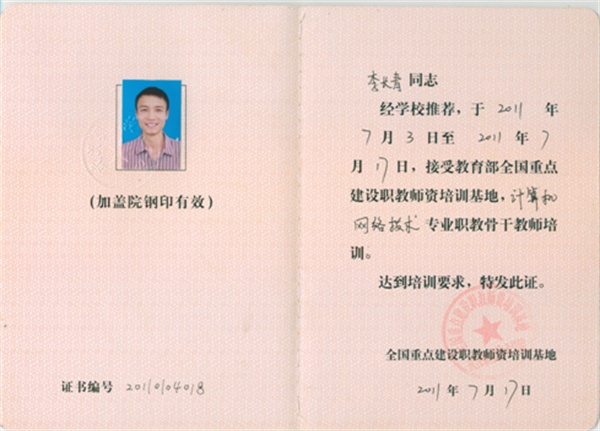 (加盖院钢印有效)
证书编号 20110104018
李长青 同志
经学校推荐,于 2011 年
7 月 3 日至 2011 年 7
月 17 日,接受教育部全国重点
建设职教师资培训基地,计算机
网络技术 专业职教骨干教师培
训。
达到培训要求,特发此证。
全国重点建设职教师资培训基地
2011 年 7 月 17 日